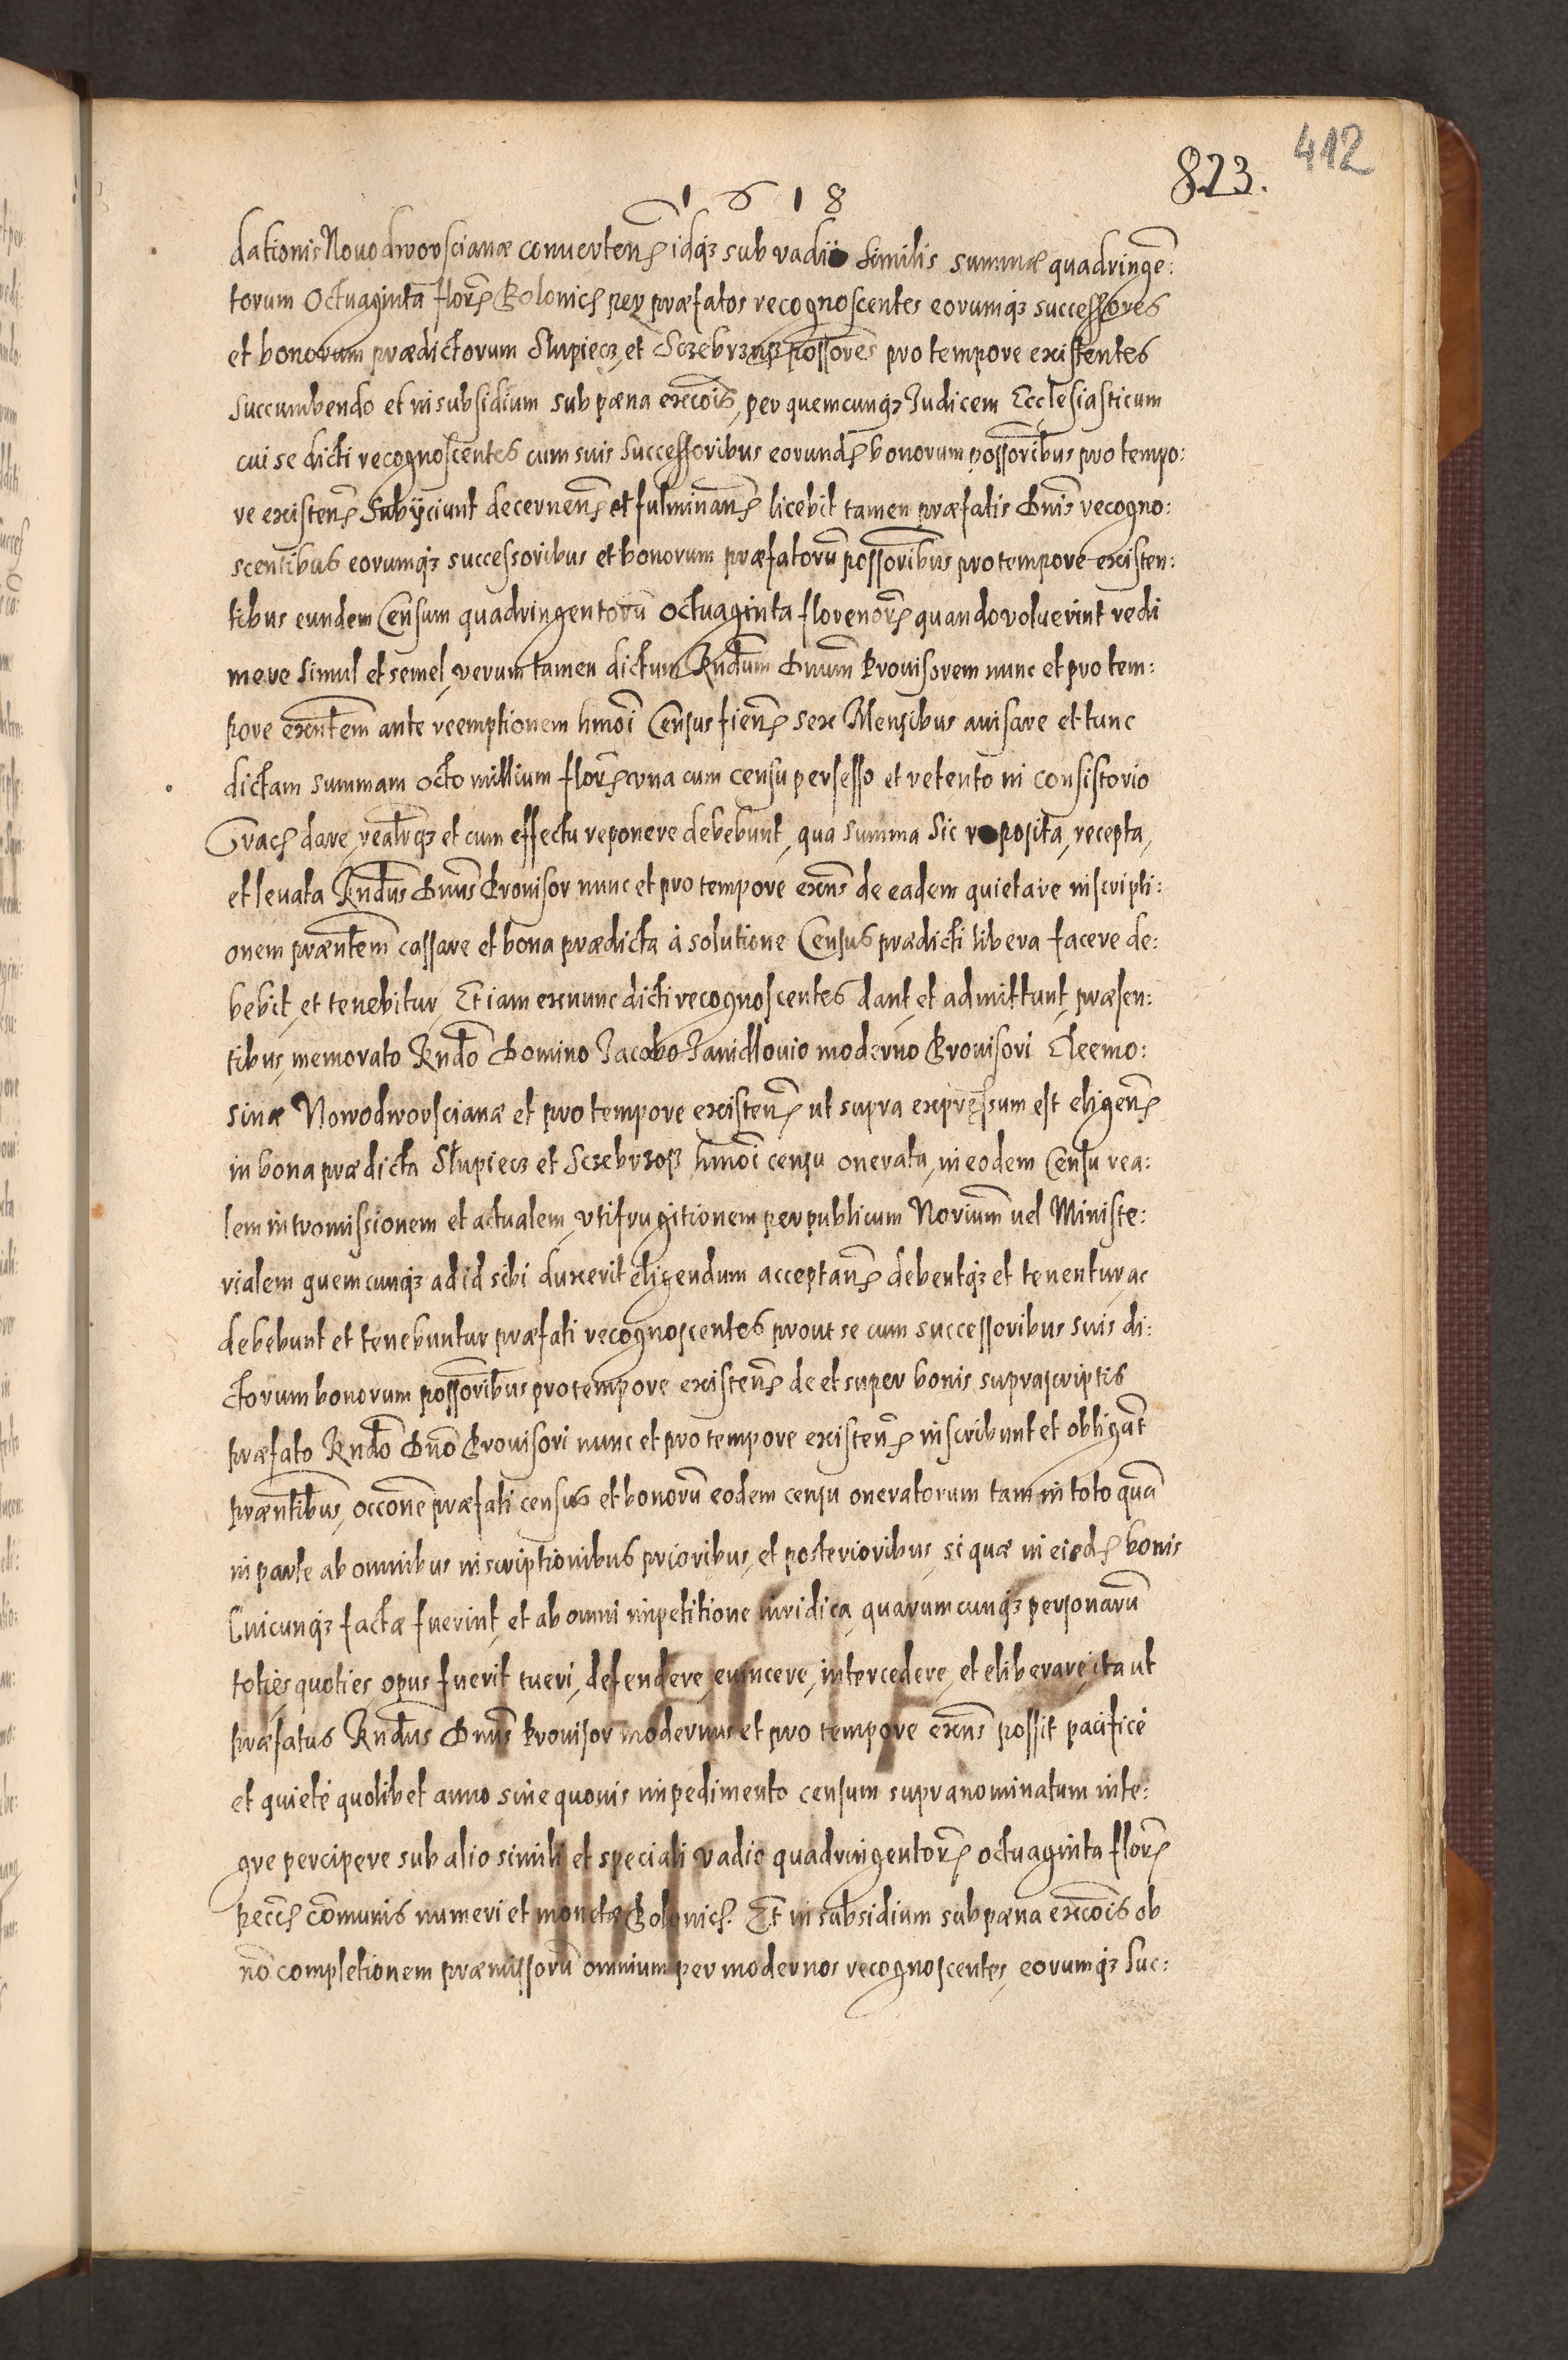 823. 412
1618
dationis Nouodworscianæ conuerten̄ idq3 sub vadii similis summæ quadringē:
torum Octuaginta flor̄ Poloniç per præfatos recognoscentes eorumq3 successores
et bonorum prædictorum Słupiecz, et Sczebrz possores pro tempore existentes
succumbendo et in subsidium sub pæna exēcois, per quemcunq3 Iudicem Ecclesiasticum
cui se dicti recognoscentes cum suis successoribus eorund bonorum possoribus pro tempo:
re existen̄ Subÿciunt decernen̄ et fulminan̄ licebit tamen præfatis Dnis recogno:
scentibus eorumq3 successoribus et bonorum præfatorū possoribus pro tempore existen:
tibus eundem Censum quadringentorū octuaginta florenor̄ quando voluerint redi
mere simul et semel, verum tamen dictum Rndum Dnum Prouisorem nunc et pro tem:
pore exntem ante reemptionem hmoi Census fien̄ sex Mensibus auisare et tunc
dictam summam octo millium flor̄ vna cum censu persesso et retento in consistorio
Craç dare, realrq3 et cum effectu reponere debebunt, qua summa sic reposita, recepta,
et leuata Rndus Dnus Prouisor nunc et pro tempore exns de eadem quietare inscripti:
onem præntem cassare et bona prædicta à solutione Census prædicti libera facere de:
bebit, et tenebitur, Et iam exnunc dicti recognoscentes dant, et admittunt, præsen:
tibus, memorato Rndo Domino Jacobo Janidlouio moderno Prouisori Eleemo:
sinæ Nowodworscianæ et pro tempore existen̄ ut supra expressum est eligen̄
in bona prædicta Słupiecz et Sczebrz hmoi censu onerata, in eodem Censu rea:
lem intromissionem et actualem, vtifrugitionem per publicum Norium uel Ministe:
rialem quemcunq3 ad id sibi duxerit eligendum acceptan̄ debentq3 et tenentur, ac
debebunt et tenebuntur præfati recognoscentes prout se cum successoribus suis di:
ctorum bonorum possoribus pro tempore existen̄ de et super bonis suprascriptis
præfato Rndo Dno Prouisori nunc et pro tempore existen̄ inscribunt et obligāt
præntibus, occone præfati census et bonorū eodem censu oneratorum tam in toto quā
in parte ab omnibus inscriptionibus prioribus, et posterioribus, si quæ in eisd bonis
Cuicunq3 factæ fuerint, et ab omni impetitione iuridica, quarumcunq3 personarū
toties quoties opus fuerit tueri, defendere, euincere, intercedere, et eliberare, ita ut
præfatus Rndus Dnus Prouisor modernus et pro tempore exns possit pacifice
et quiete quolibet anno sine quouis impedimento censum supranominatum inte:
gre percipere sub alio simili et speciali vadio quadringentor̄ octuaginta flor̄
pecç cōmunis numeri et monetæ Poloniç. Et in subsidium sub pæna exēcois ob
nō completionem præmissorū omnium per modernos recognoscentes, eorumq3 Suc: